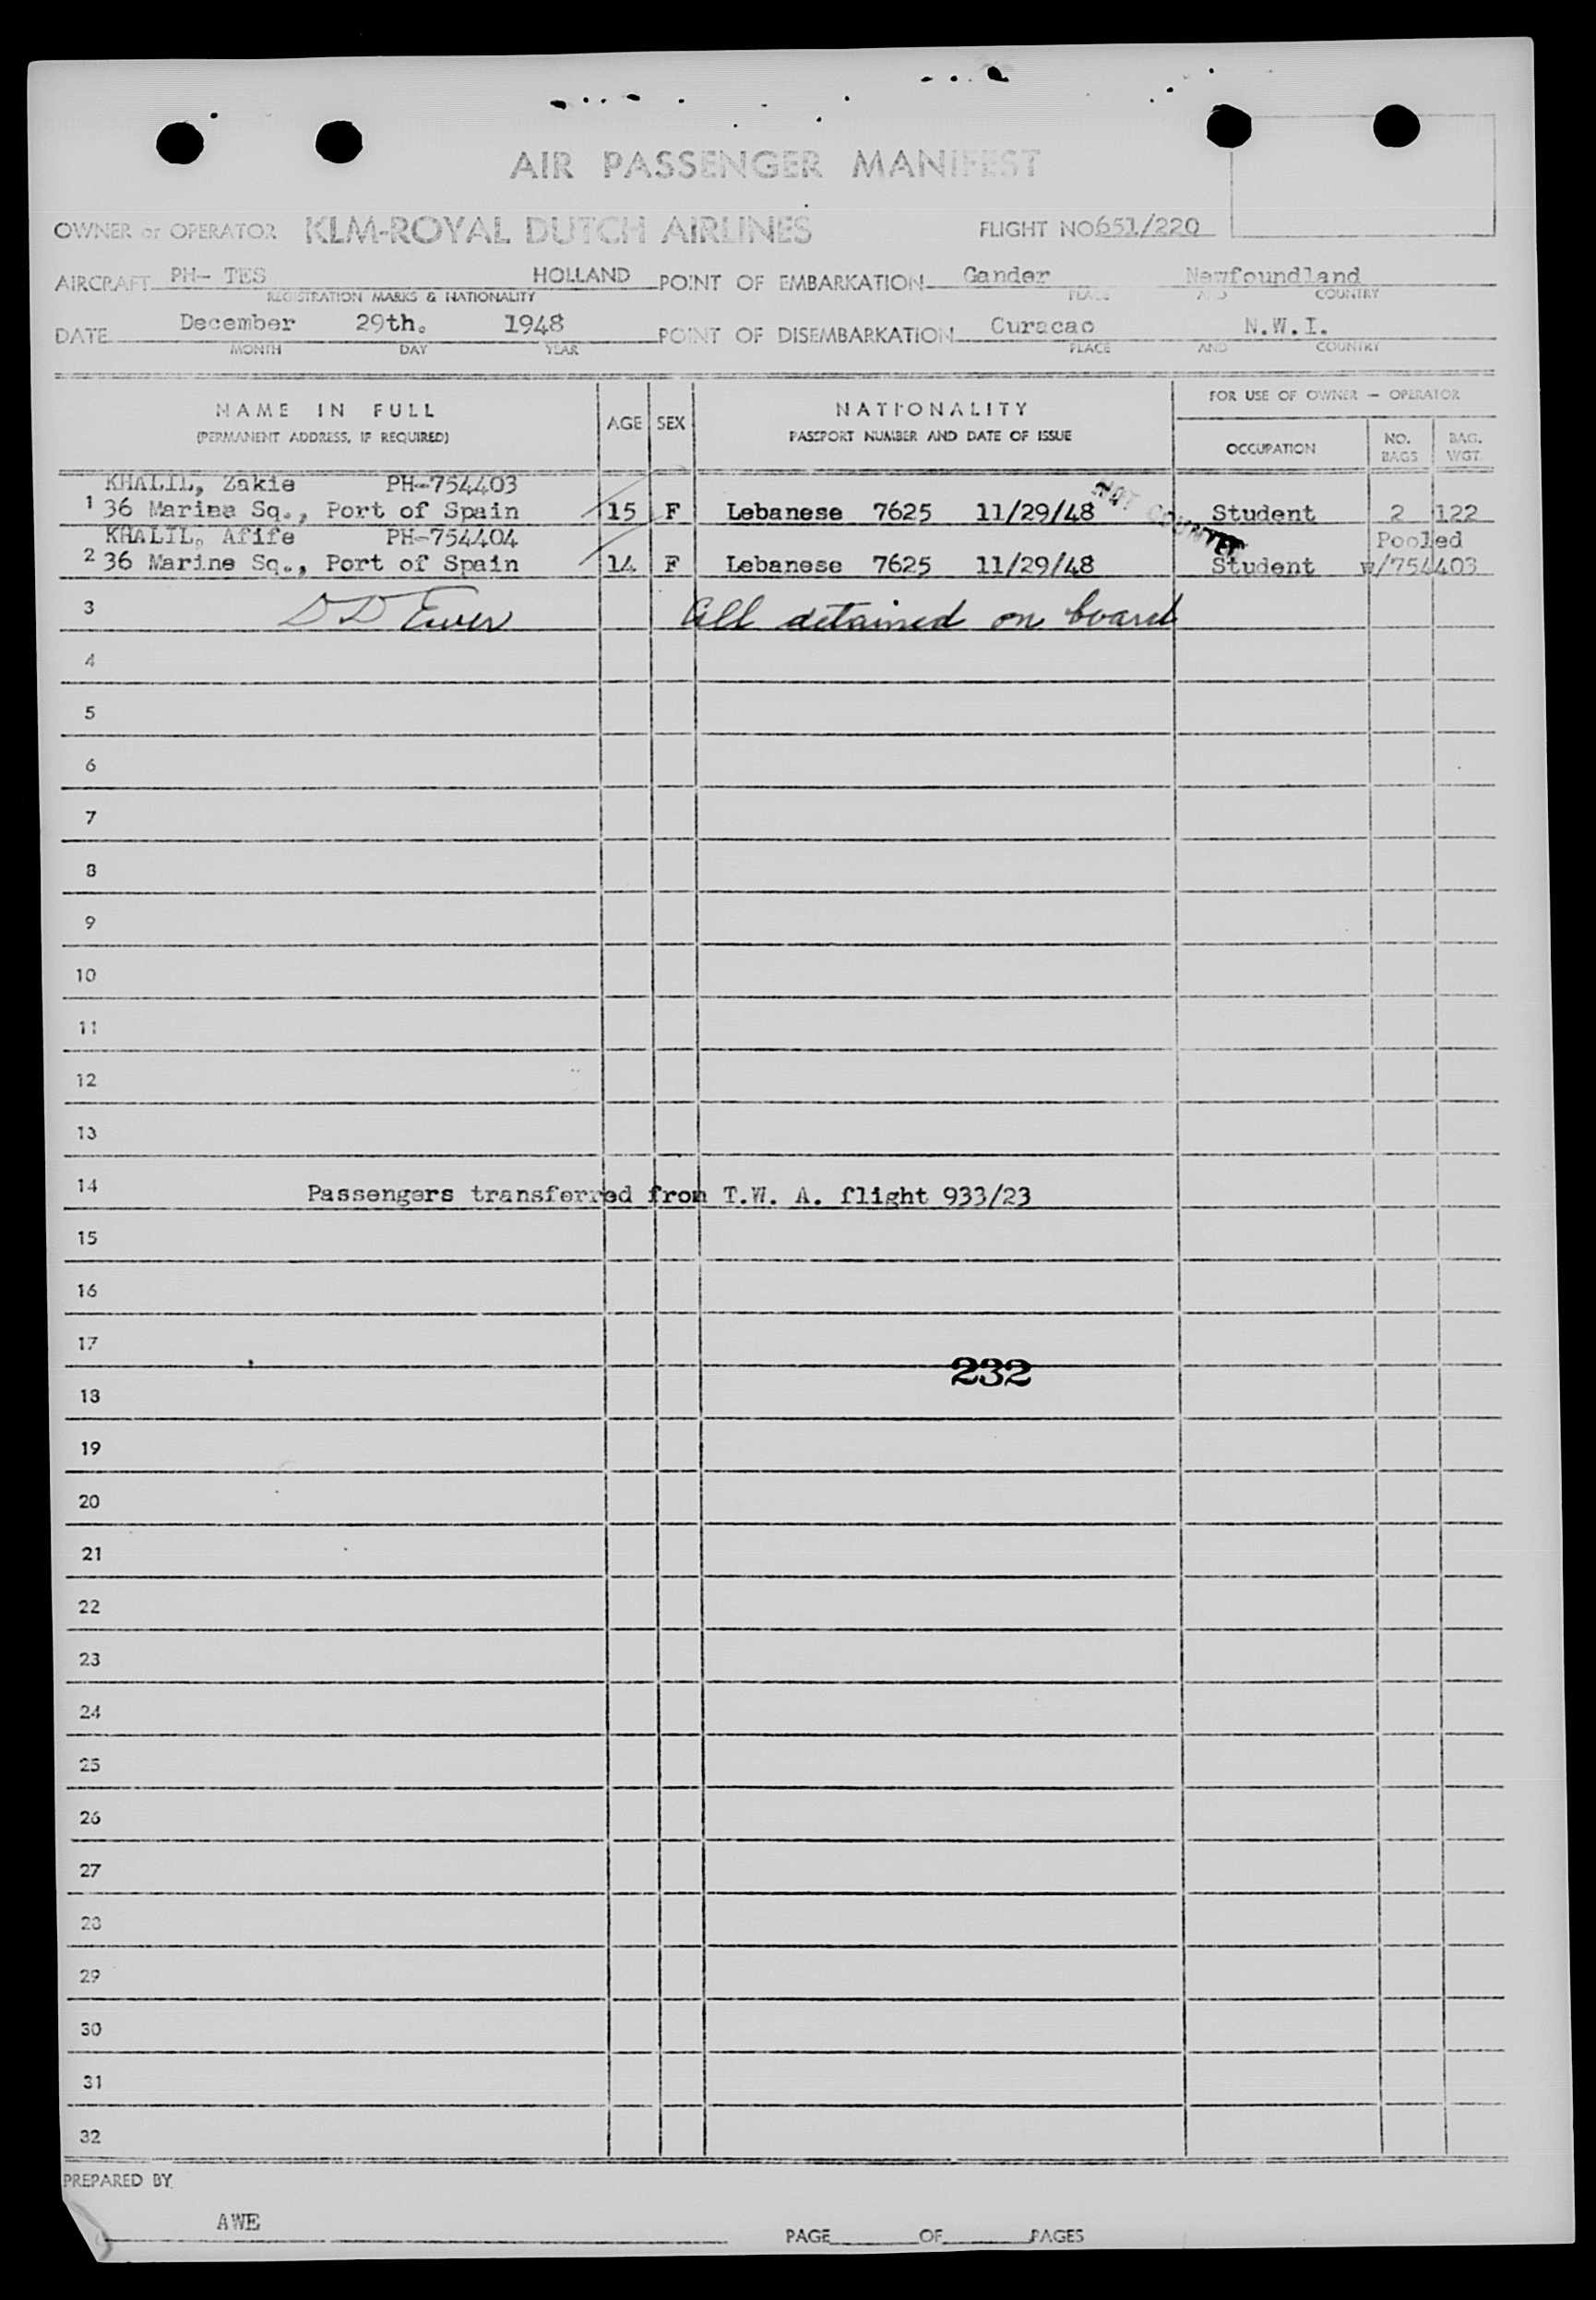 AIR PASSENGER MANIFEST
OWNER or OPERATOR KLM-ROYAL DUTCH AIRLINES FLIGHT NO 651/220
AIRCRAFT PH- TES HOLLAND POINT OF EMBARKATION Gander Newfoundland
REGISTRATION MARKS & NATIONALITY PLACE AND COUNTRY
DATE December 29th. 1948 POINT OF DISEMBARKATION Curacao N.W.I.
MONTH DAY YEAR PLACE AND COUNTRY
NAME IN FULL AGE SEX NATIONALITY FOR USE OF OWNER — OPERATOR
(PERMANENT ADDRESS, IF REQUIRED) PASSPORT NUMBER AND DATE OF ISSUE OCCUPATION NO. BAGS BAG. WGT.
KHALIL, Zakie PH-754403
1 36 Marine Sq., Port of Spain 15 F Lebanese 7625 11/29/48 NOT COUNTED Student 2 122
KHALIL, Afife PH-754404 Pooled
2 36 Marine Sq., Port of Spain 14 F Lebanese 7625 11/29/48 Student w/754403
3 All detained on board
4
5
6
7
8
9
10
11
12
13
14 Passengers transferred from T.W. A. flight 933/23
15
16
17
232
18
19
20
21
22
23
24
25
26
27
28
29
30
31
32
PREPARED BY
AWE
PAGE OF PAGES